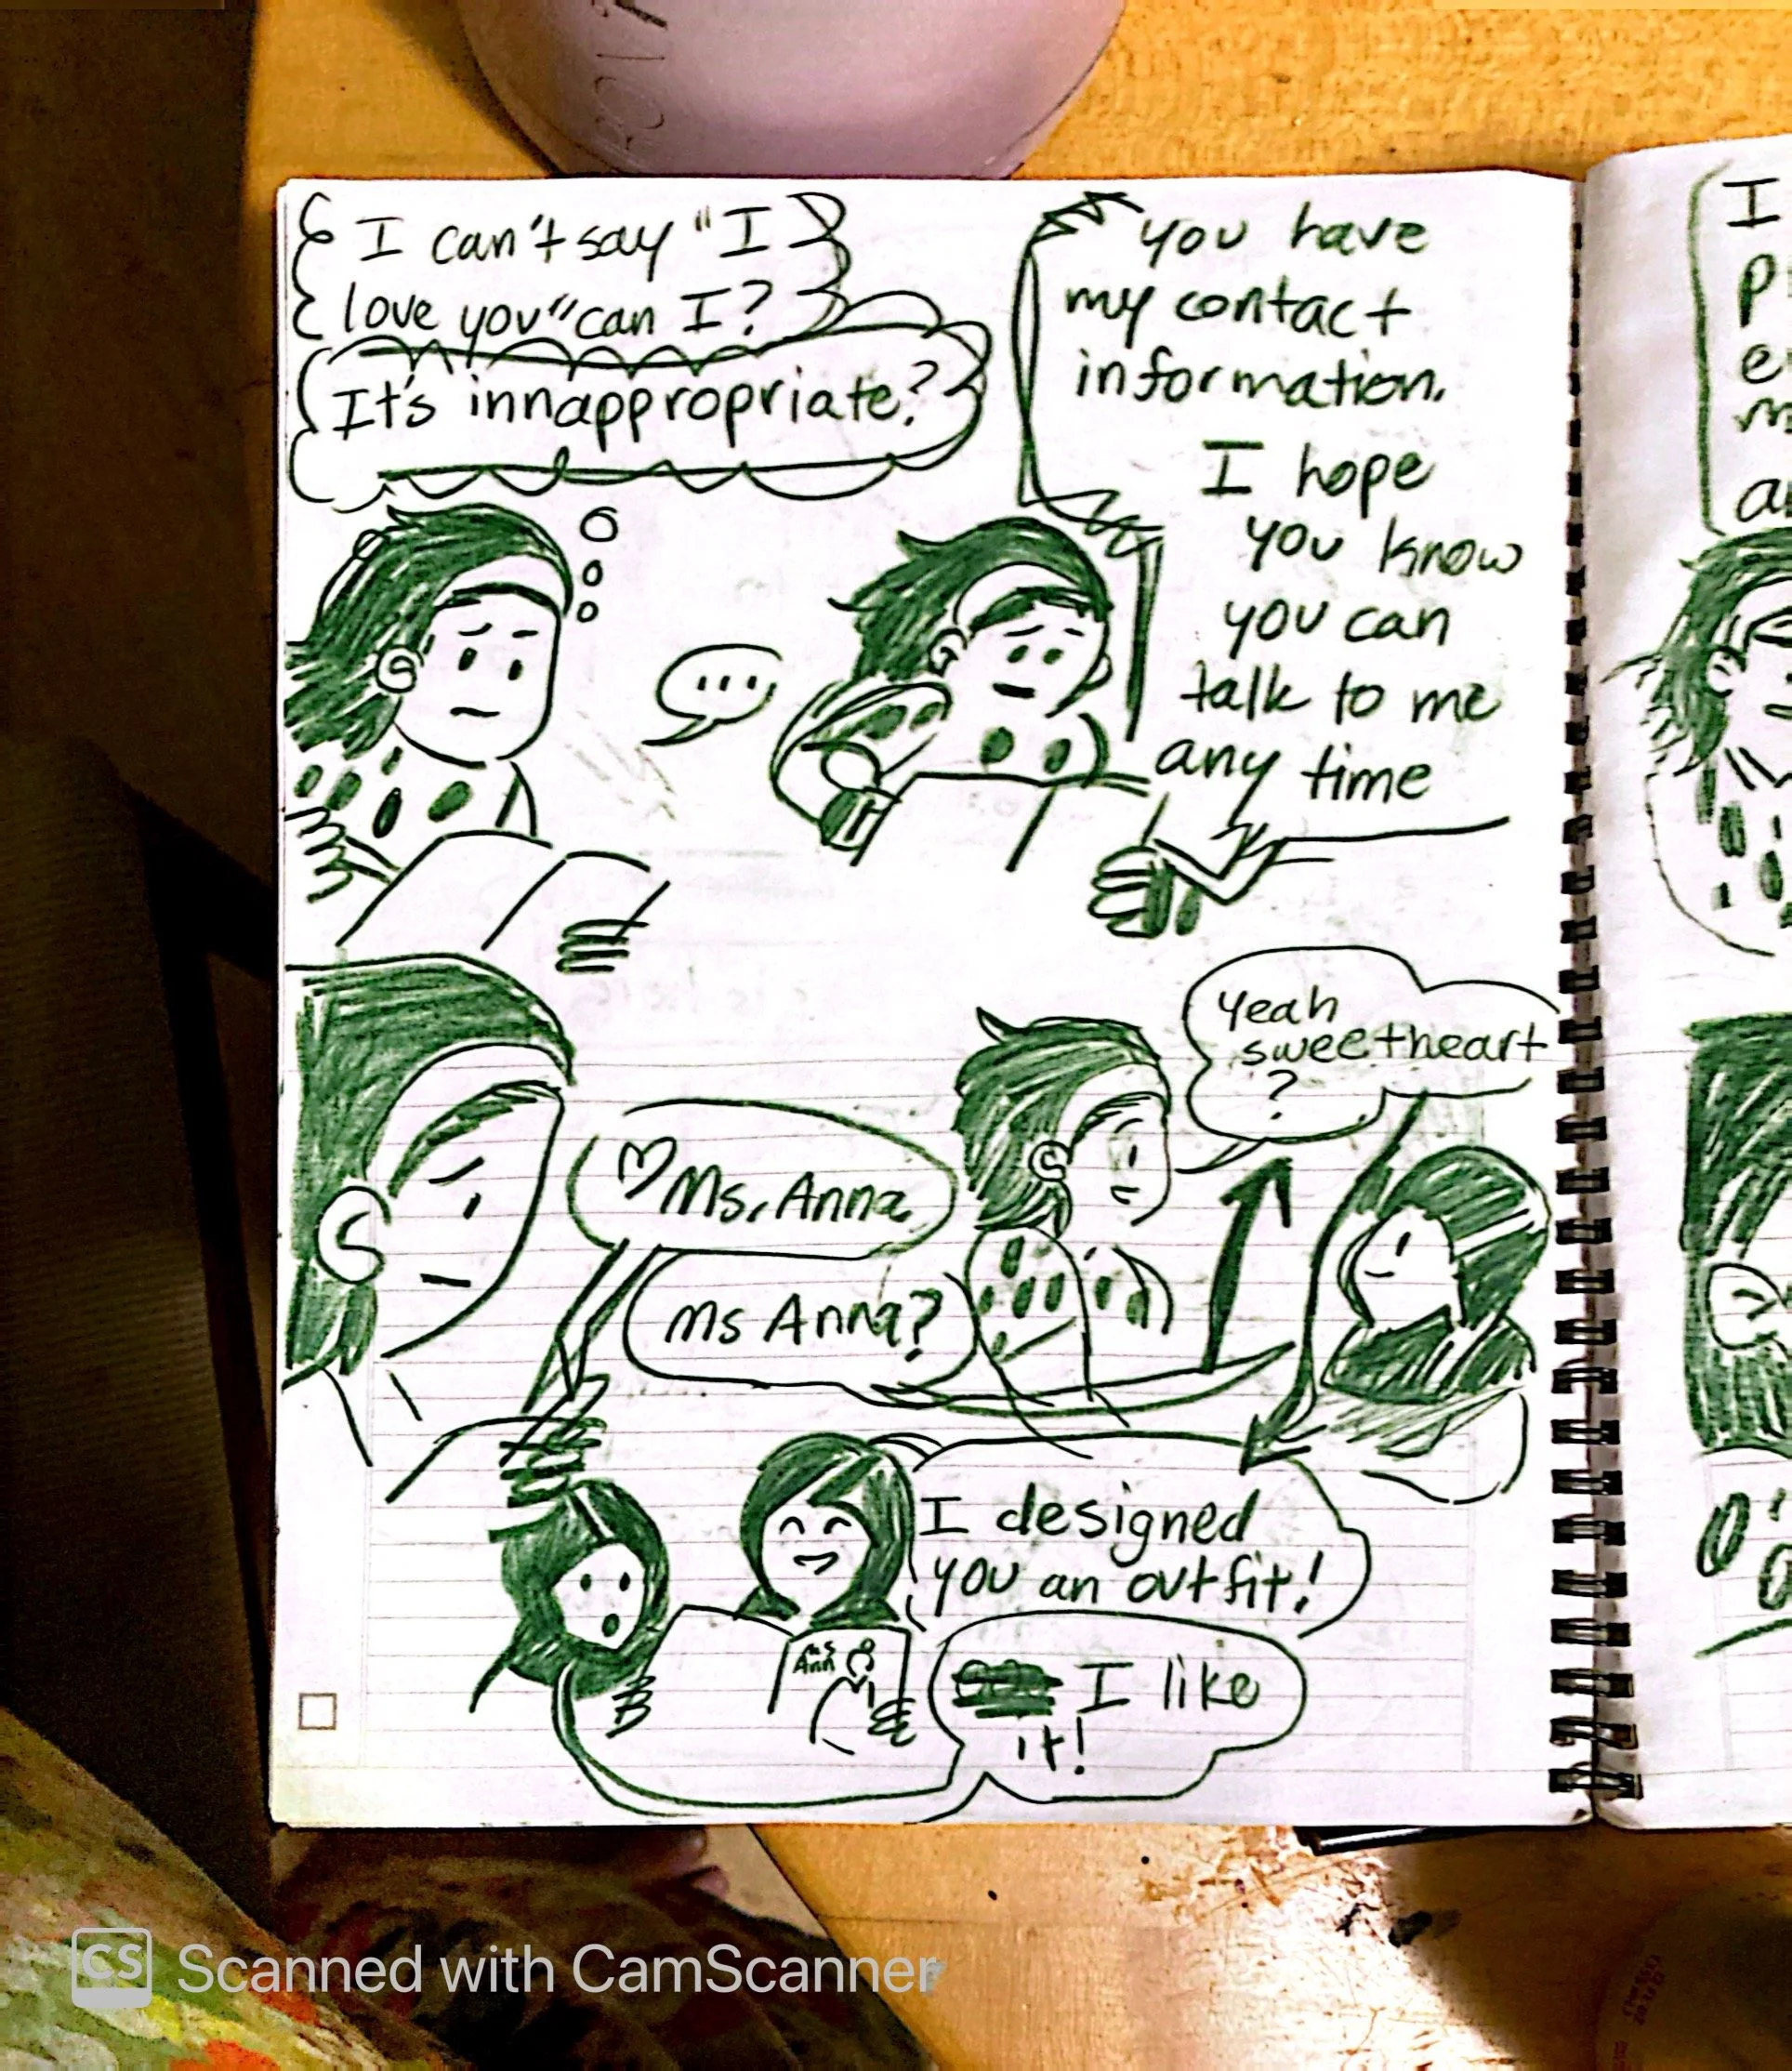 I can't say "I
love you" can I?
It's innappropriate?
you have
my contact
information.
I hope
you know
you can
talk to me
any time
...
yeah
sweetheart
?
♡Ms. Anna
Ms Anna?
I designed
you an outfit!
Ms
Ann
I like
it!
I
e
CS Scanned with CamScanner